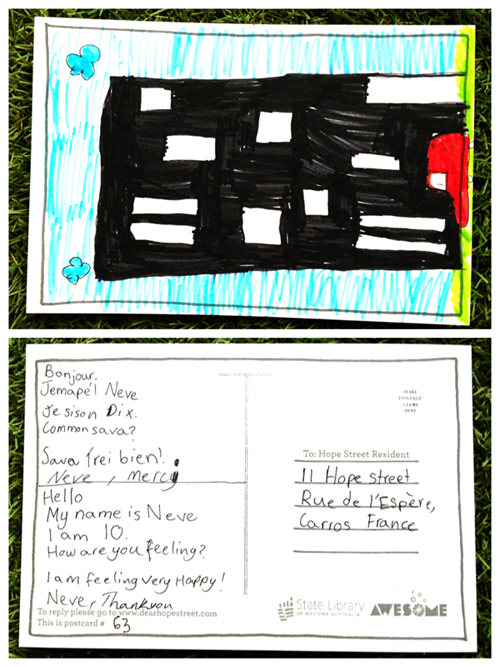 Bonjour.
Jemapél Neve
Je sison Dix.
Common sava?
Sava frei bien!.
Neve, mercy
Hello
My name is Neve
I am 10.
How are you feeling?
I am feeling very Happy!
Neve, Thankyou
To reply please go to www.dearhopestreet.com
This is postcard # 63
PLACE
POSTAGE
STAMP
HERE
To: Hope Street Resident
11 Hope street
Rue de l'Espère,
Carros France
State Library
OF WESTERN AUSTRALIA
AWESOME